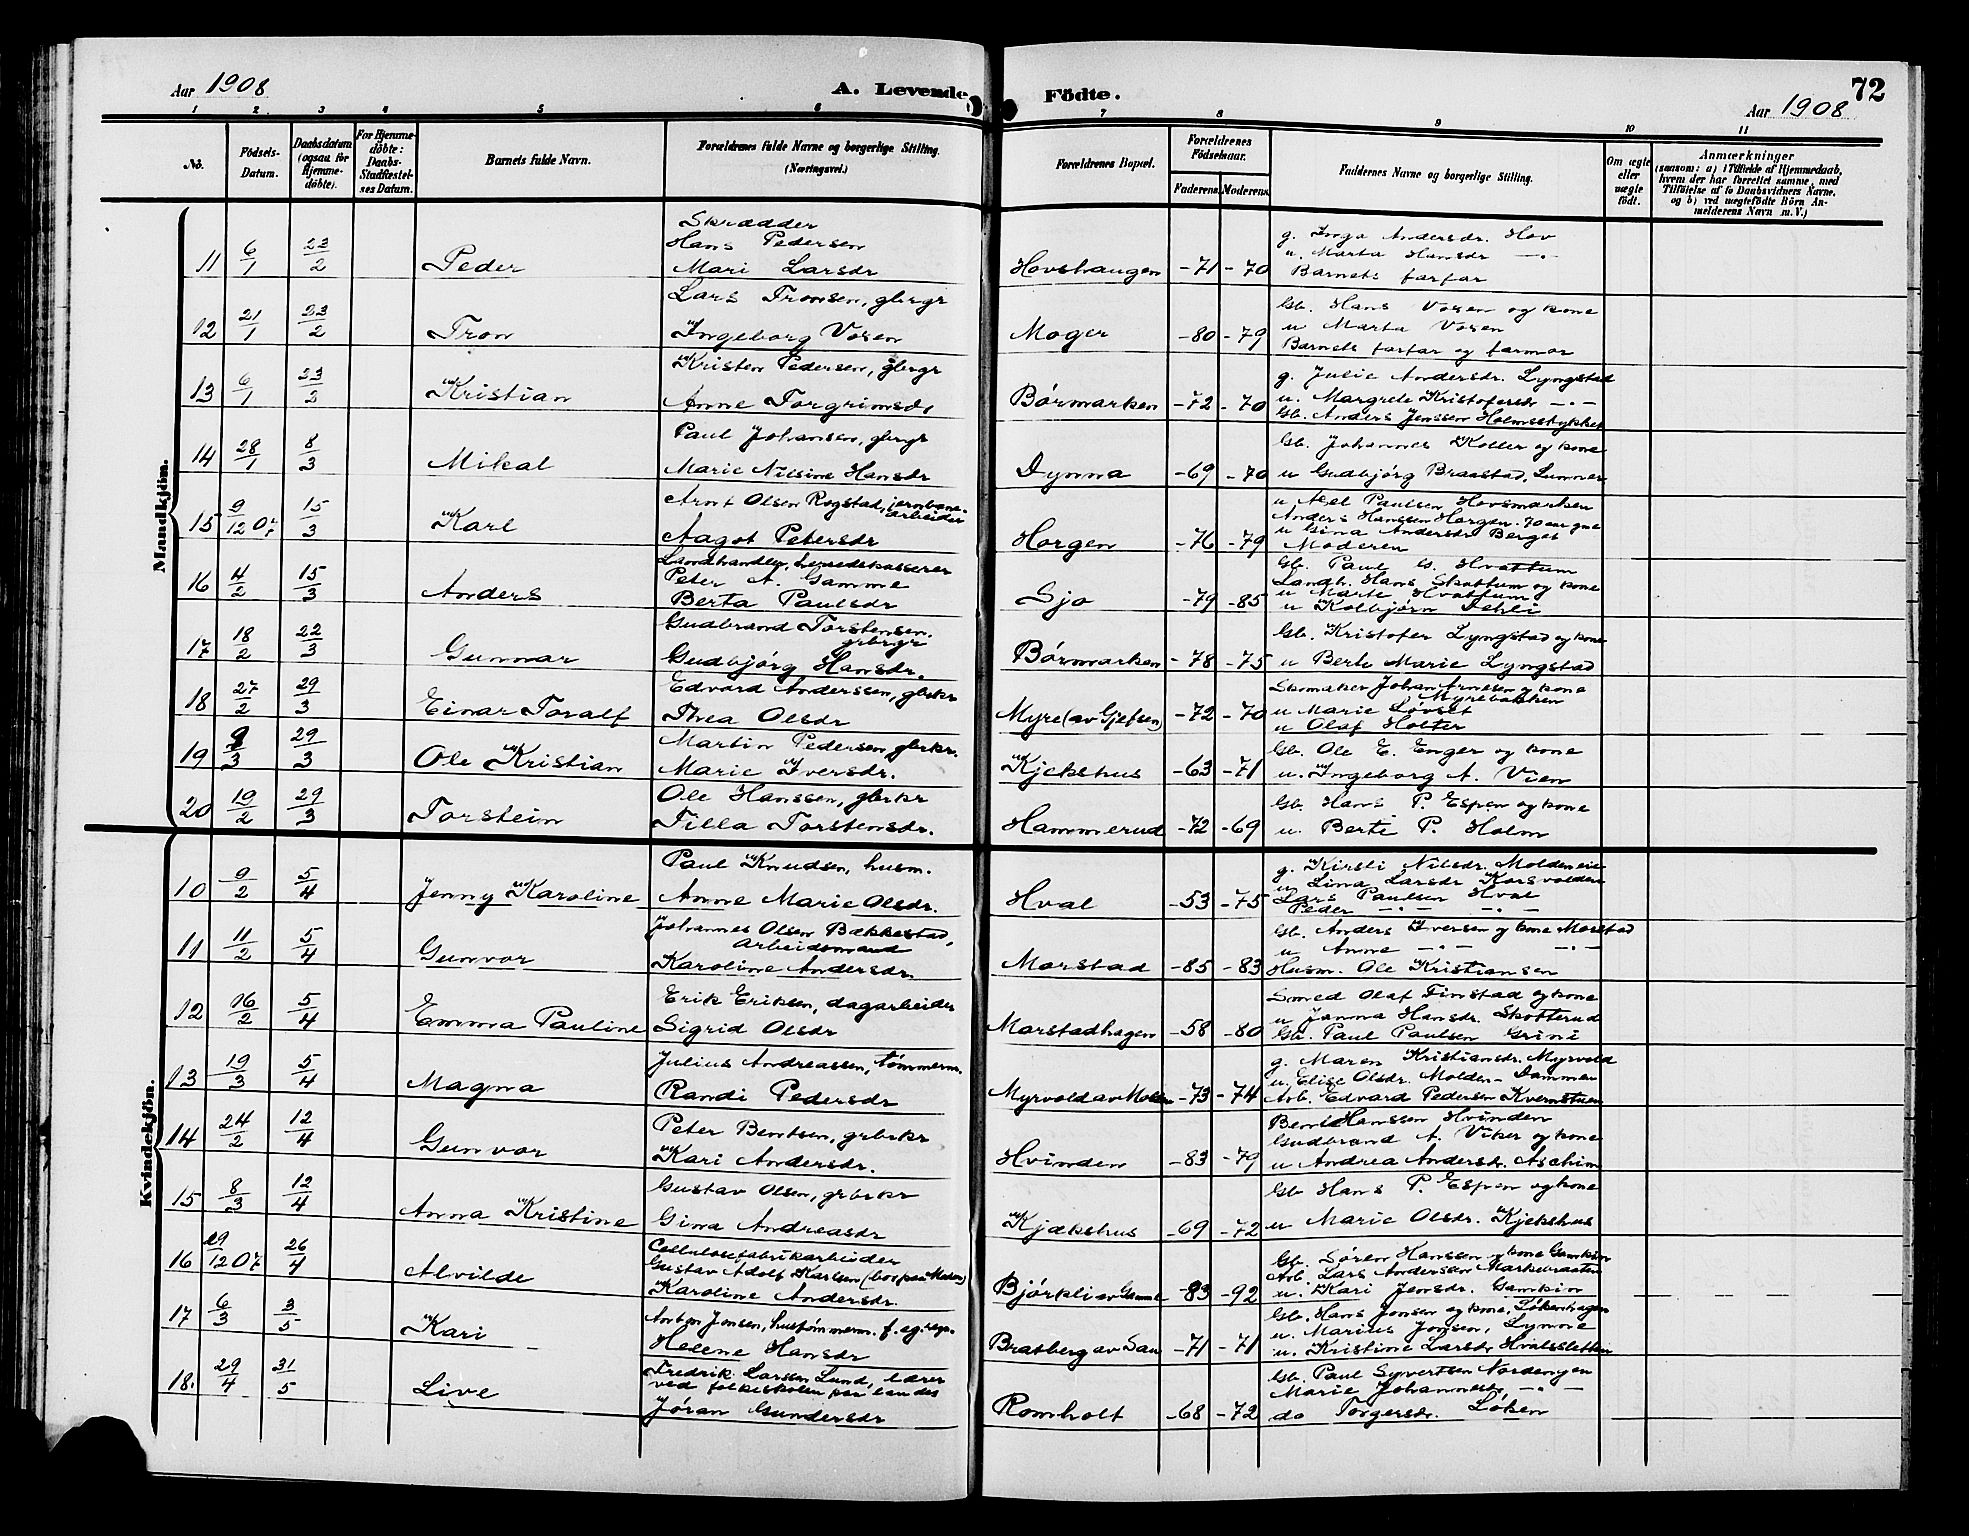 Aar 1908
A. Levende Födte.
72
Aar 1908
1 2 3 4 5 6 7 8 9 10 11
No.
Födsels-Datum.
Daabsdatum (ogsaa for Hjemmedöbte).
For Hjemmedöbte: Daabs-Stadfæstelses Datum.
Barnets fulde Navn.
Forældrenes fulde Navne og borgerlige Stilling. (Næringsvei.)
Forældrenes Bopæl.
Forældrenes Födselsaar.
Faderens. Moderens.
Faddernes Navne og borgerlige Stilling.
Om ægte eller uægte födt.
Anmærkninger
(saasom: a) i Tilfælde af Hjemmedaab, hvem der har forrettet samme, med Tilföielse af to Daabsvidners Navne, og b) ved uægtefödte Börn Anmelderens Navn m. V.)
Mandkjön.
11 6/1 23/2 Peder Skrædder Hans Pedersen Mari Larsdr Hovshaugen -71 -70 g. Inga Andersdr. Hov u. Marta Hansdr -"- Barnets farfar
12 21/1 23/2 Tron Lars Tronsen, gbrgr Ingeborg Vosen Moger -80 -79 Gb. Hans Vosen og kone u Marta Vosen Barnets farfar og farmor
13 6/1 23/2 Kristian Kristen Pedersen, gbrgr Anne Torgrimsdr Børmarken -72 -70 g. Julie Andersdr. Lyngstad u. Margrete Kristofersdr -"- Gb. Anders Jenssen Holmsstykket
14 28/1 8/3 Mikal Paul Johansen, gbrgr Marie Nilsine Hansdr Dynna -69 -70 Gb. Johannes Koller og kone u Gudbjørg Braastad, Lunner
15 9/12 07 15/3 Karl Arnt Olsen Rogstad, jernbanearbeider Aagot Petersdr Horgen -76 -79 u Axel Paulsen Hovsmarken Anders Hanssen Horgen u Gina Andersdr Berget Moderen
16 4/2 15/3 Anders Landhandler, herredskasserer Peter A. Gamme Berta Paulsdr Sjo -79 -85 Gb. Paul Hvattum Landh. Hans Skattum og kone u Marte Hvattum u Kolbjørn Dehli
17 18/2 22/3 Gunnar Gudbrand Torstensen, gbrgr Gudbjørg Hansdr. Børmarken -78 -75 Gb. Kristofer Lyngstad og kone u Berte Marie Lyngstad
18 27/2 29/3 Einar Toralf Edvard Anderssen, gbrkr Thea Olsdr Myre (av Gjefsen) -72 -70 Skomaker Johan Arnesen og kone Myrebakken u Marie Løvset u Olaf Holter
19 9/3 29/3 Ole Kristian Martin Pedersen, gbrkr. Marie Iversdr. Kjekshus -63 -71 Gb. Ole E. Enger og kone u. Ingeborg A. Vien
20 19/2 29/3 Torstein Ole Hanssen, gbrkr Tilla Torstensdr. Hammerud -72 -69 Gb. Hans P. Espen og kone u. Berti P. Holm
Kvindekjön.
10 9/2 5/4 Jenny Karoline Paul Knudsen, husm. Anne Marie Olsdr. Hval -53 -75 g. Kirsti Nilsdr. Moldeneie u Lina Larsdr Korsvolden Lars Paulsen Hval Peder -"- -"-
11 11/2 5/4 Gunvor Johannes Olsen Bækkestad, arbeidsmand Karoline Andersdr. Morstad -85 -83 Gb. Anders Iversen og kone Morstad u Anne -"- -"- Husm. Ole Kristiansen
12 16/2 5/4 Emma Pauline Erik Eriksen, dagarbeider Sigrid Olsdr Morstadhagen -58 -80 Smed Olaf Finstad og kone u Janna Hansdr. Skotterud Gb. Paul Paulsen Grini
13 19/3 5/4 Magna Julius Andreassen, tømmerm. Randi Pedersdr Myrvold av Molden -73 -74 g. Maren Kristiansdr. Myrvold u. Elise Olsdr. Molden-Dammen Arb. Edvard Pedersen Kvernstuen
14 24/2 12/4 Gunvor Peter Bentsen, grbrkr Kari Andersdr. Hvinden -83 -79 Bent Hanssen Hvinden Gudbrand A. Viker og kone u Andrea Andersdr. Aschim
15 8/3 12/4 Anna Kristine Gustav Olsen, grbrkr Gina Andreasdr Kjækshus -69 -72 Gb Hans P. Espen og kone u Marie Olsdr. Kjekshus
16 29/12 07 26/4 Alvilde Cellulosefabrikarbeider Gustav Adolf Karlsen (bor paa Moen) Karoline Andersdr. Bjørkli av Gamme -83 -92 Gb. Søren Hanssen og kone Gamkin Arb. Lars Anderssen Markebraaten u. Kari Jensdr. Gamkin
17 6/3 3/5 Kari Anton Jonsen, hustømmerm. f. eg. regn. Helene Hansdr Bratberg av San -71 -71 Gb. Hans Jonsen og kone, Løkenhagen u. Marius Jonsen, Lynne u. Kristine Larsdr Hvalssletten
18. 29/4 31/5 Live Fredrik Larssen Lund, lærer ved folkeskolen paa landet Jøran Gundersdr Romholt -68 -72 Gb. Paul Syvertsen Nordengen Marie Johannesdr, -"- do Torgersdr. Løken